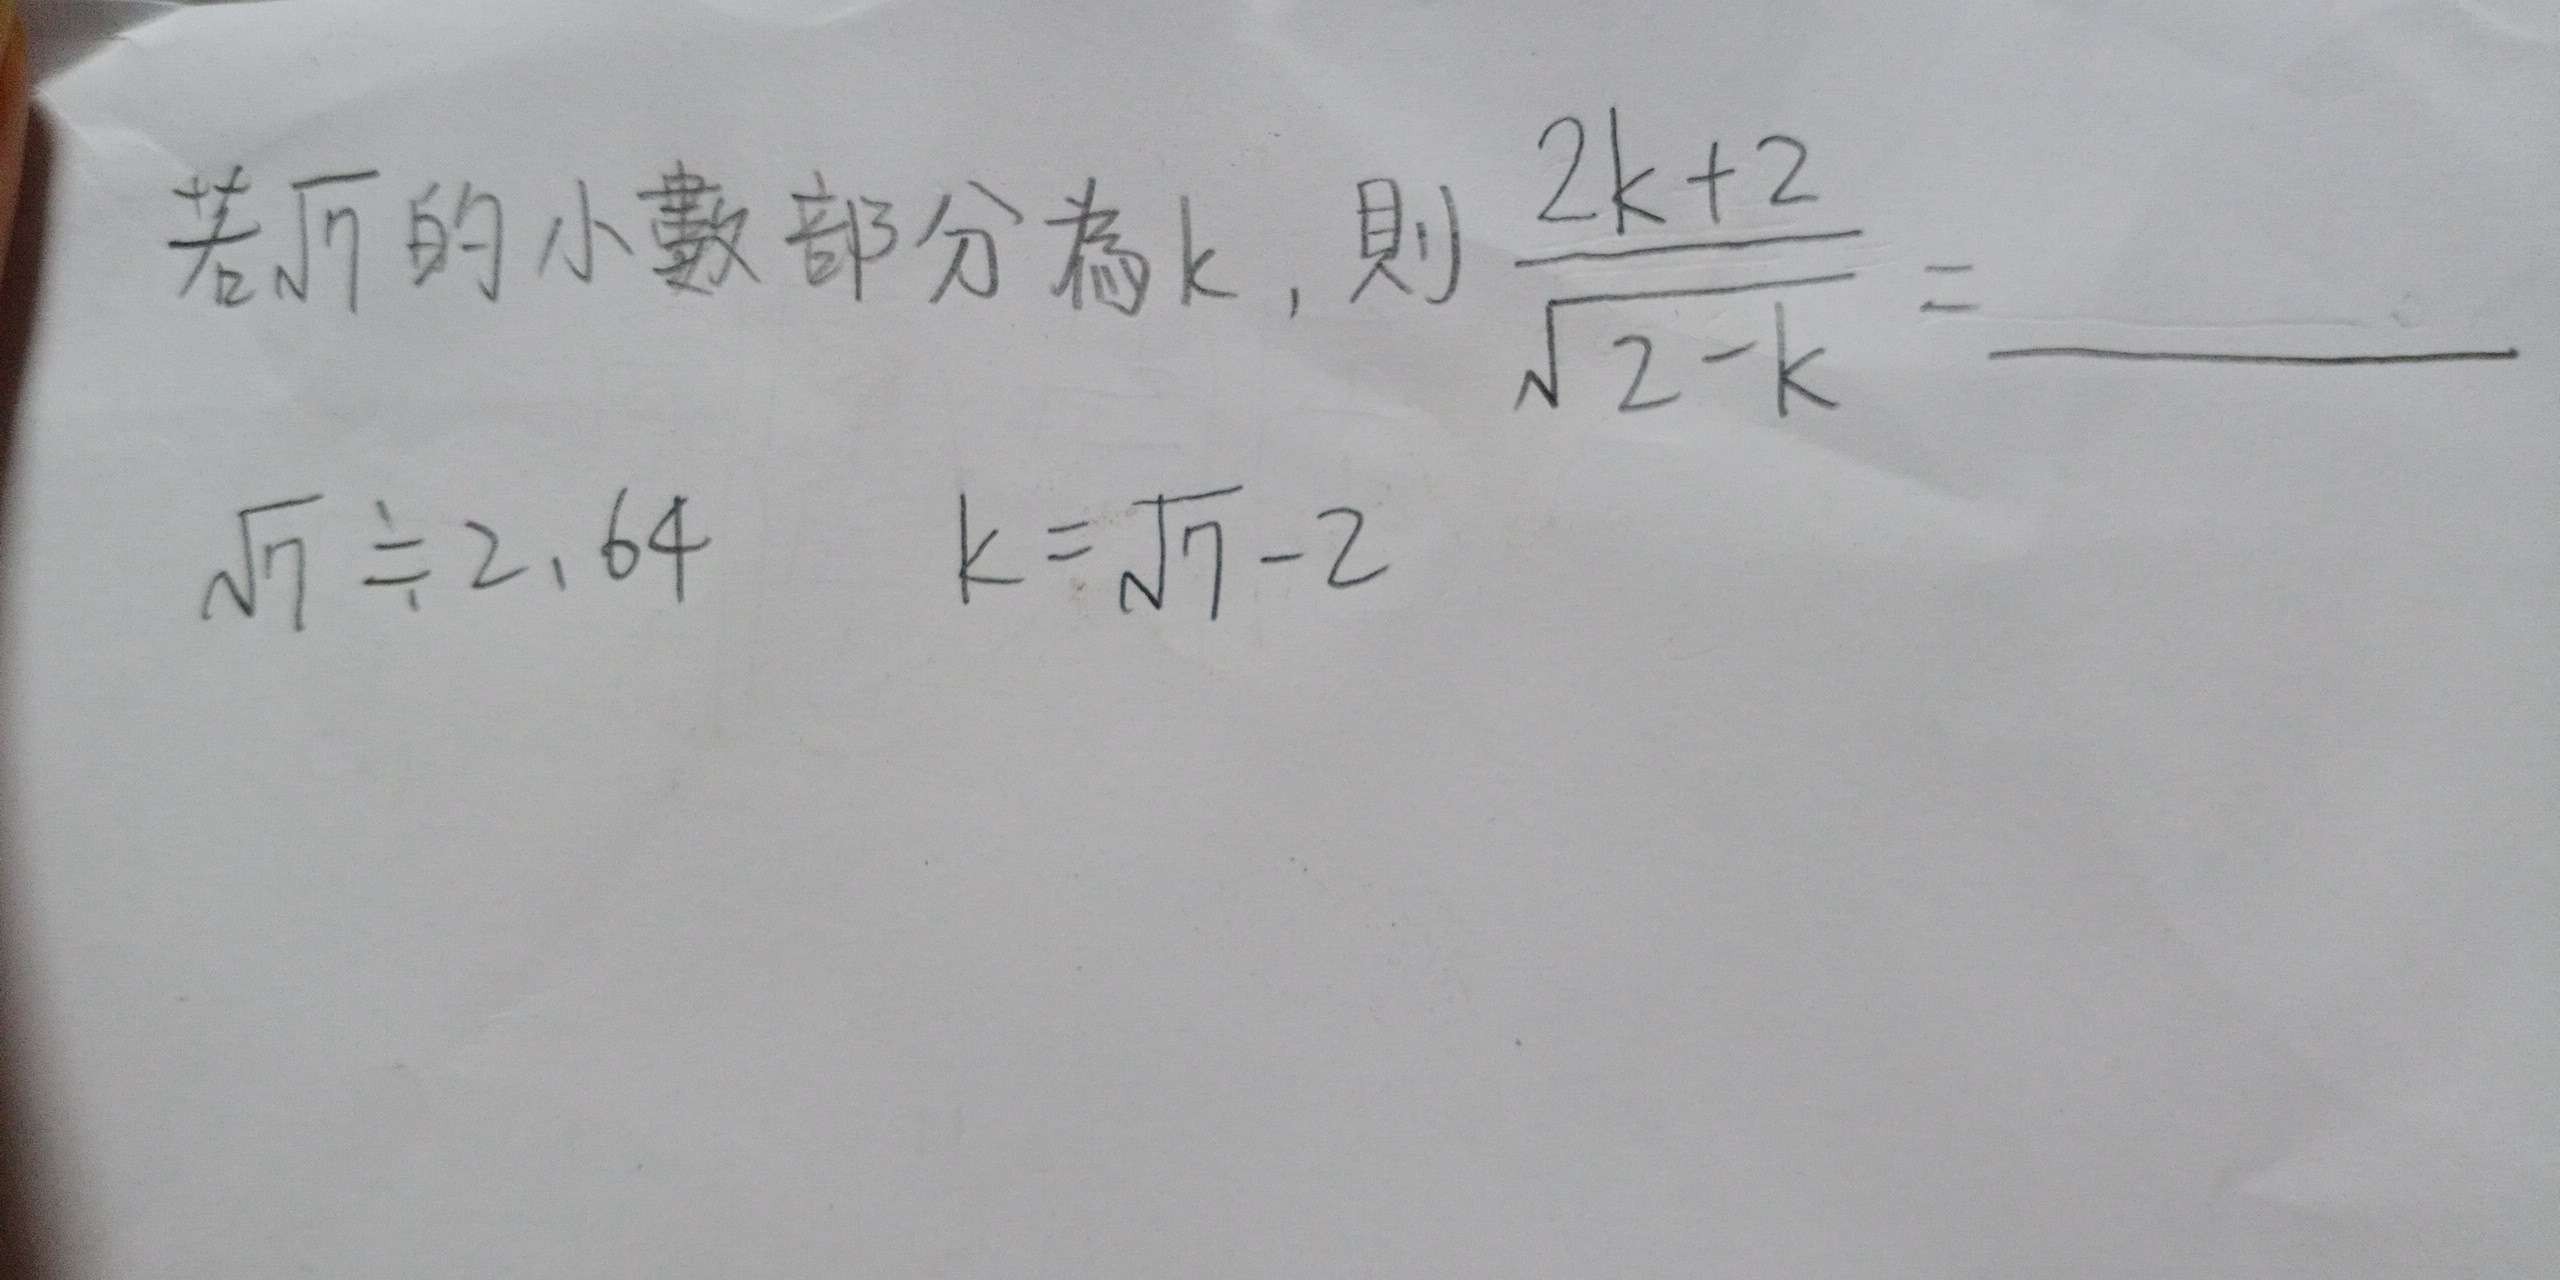 若√7的小數部分為k,則 (2k+2)/√(2-k) = ______
√7≒2.64  k=√7-2